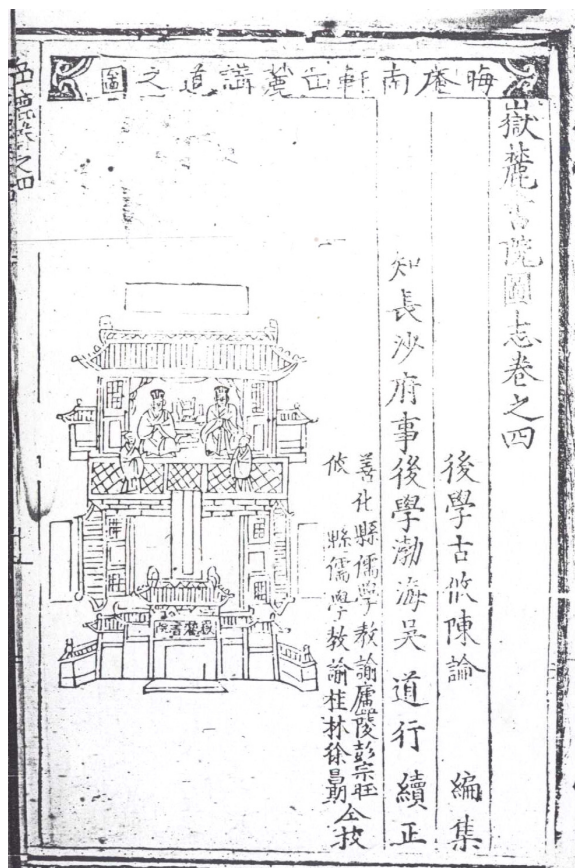 嶽麓書院圖志卷之四
後學古攸陳論 編集
知長沙府事後學渤海吳道行續正
善化縣儒學教諭廬陵彭宗旺
攸縣儒學教諭桂林徐昌期
仝校
晦庵南軒岳麓講道之圖
嶽麓書院